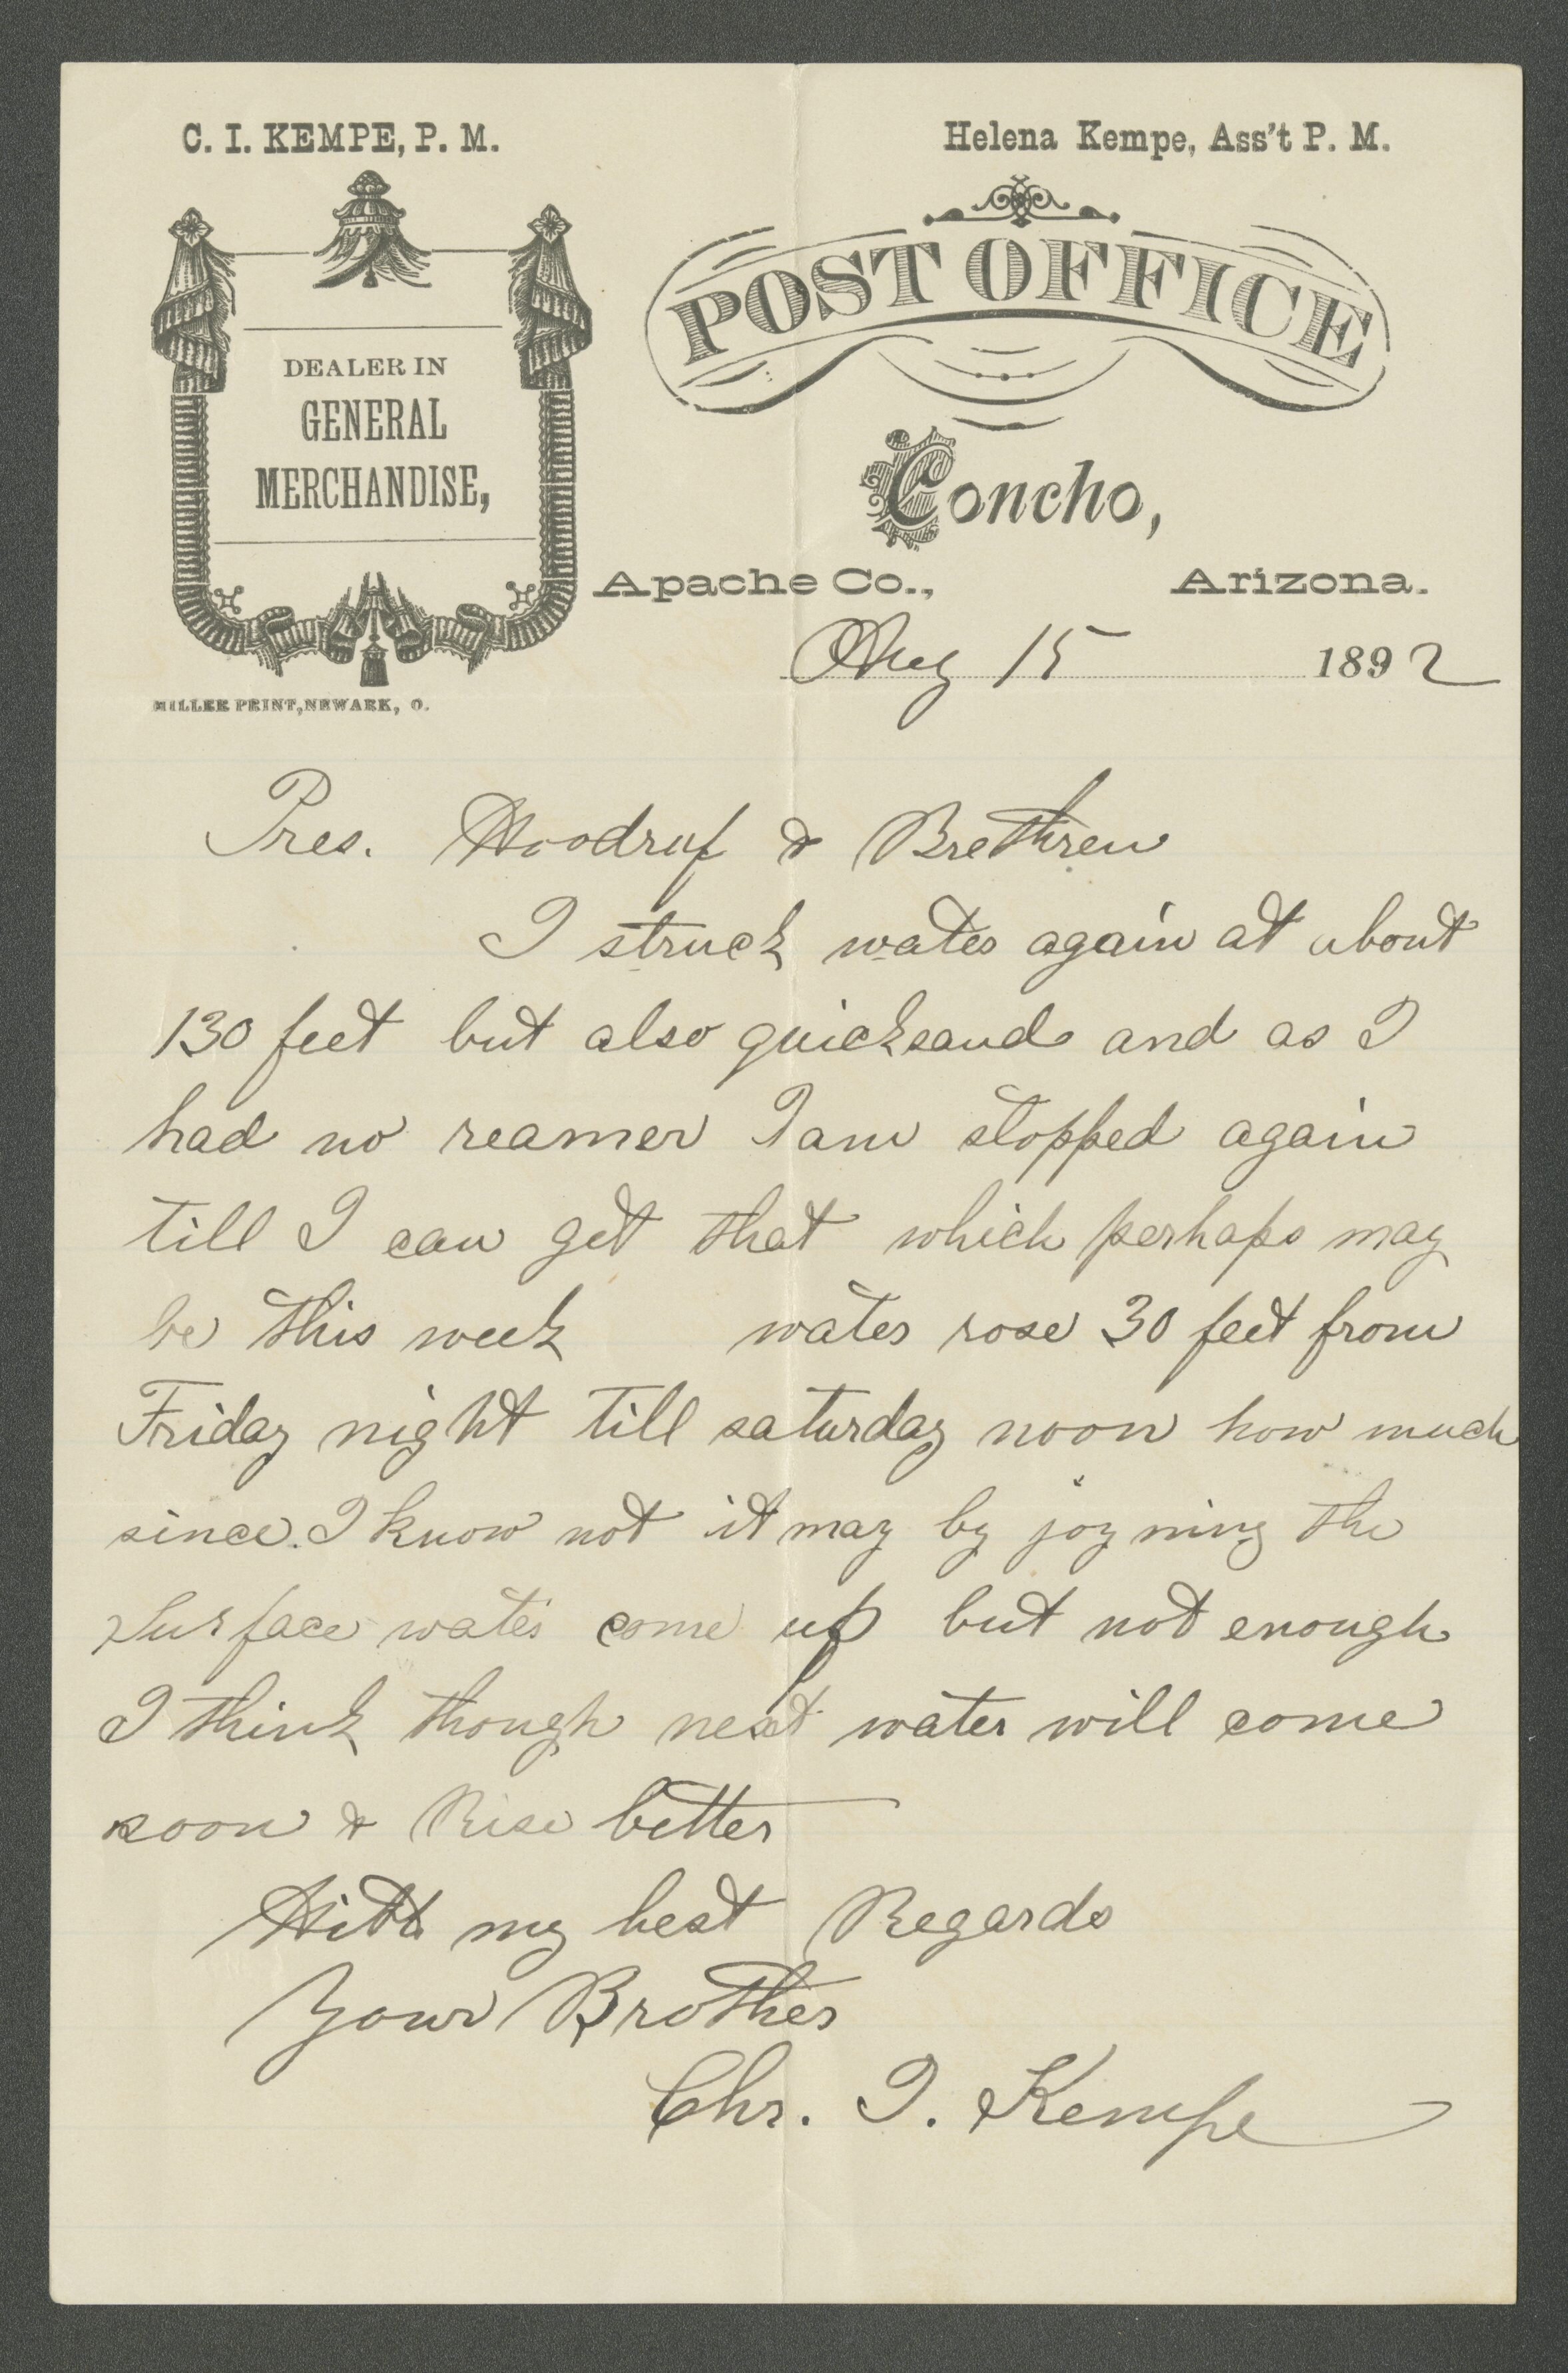 C. I. KEMPE, P. M.
Helena Kempe, Ass't P. M.
DEALER IN
GENERAL
MERCHANDISE,
MILLER PRINT, NEWARK, O.
POST OFFICE
Concho,
Apache Co., Arizona.
Aug 15 1892
Pres. Woodruf & Brethren
I struck water again at about
130 feet but also quicksand and as I
had no reamer I am stopped again
till I can get that which perhaps may
be this week water rose 30 feet from
Friday night till saturday noon how much
since. I know not it may by joyning the
Surface water come up but not enough
I think though next water will come
soon & Rise better
With my best Regards
Your Brother
Chr. I. Kempe